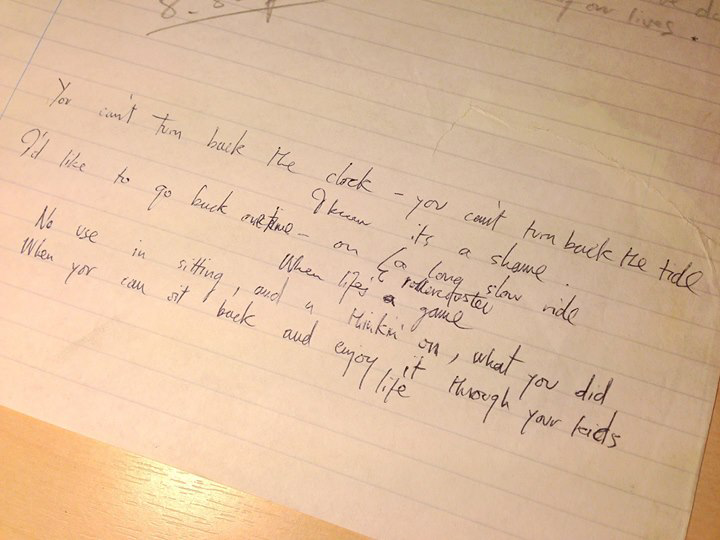 on lives.
You can't turn back the clock - you can't turn back the tide
I know its a shame.
I'd like to go back one time - on a long slow ride
rollercoaster
When life's a game
No use in sitting, and a thinkin' on, what you did
When you can sit back and enjoy it through your kids
life